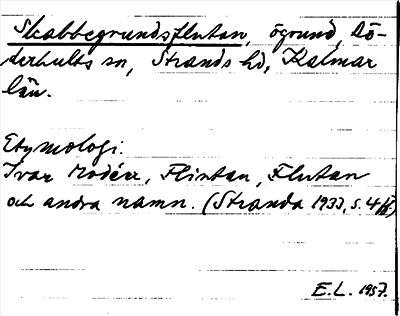 Skabbegrundsflutan, ögrund, Dö-
derhults sn, Stranda hd, Kalmar
län.
Etymologi:
Ivar Modéer, Flintan, Flutan
och andra namn. (Stranda 1933, s. 4 ff.)
E.L. 1957.